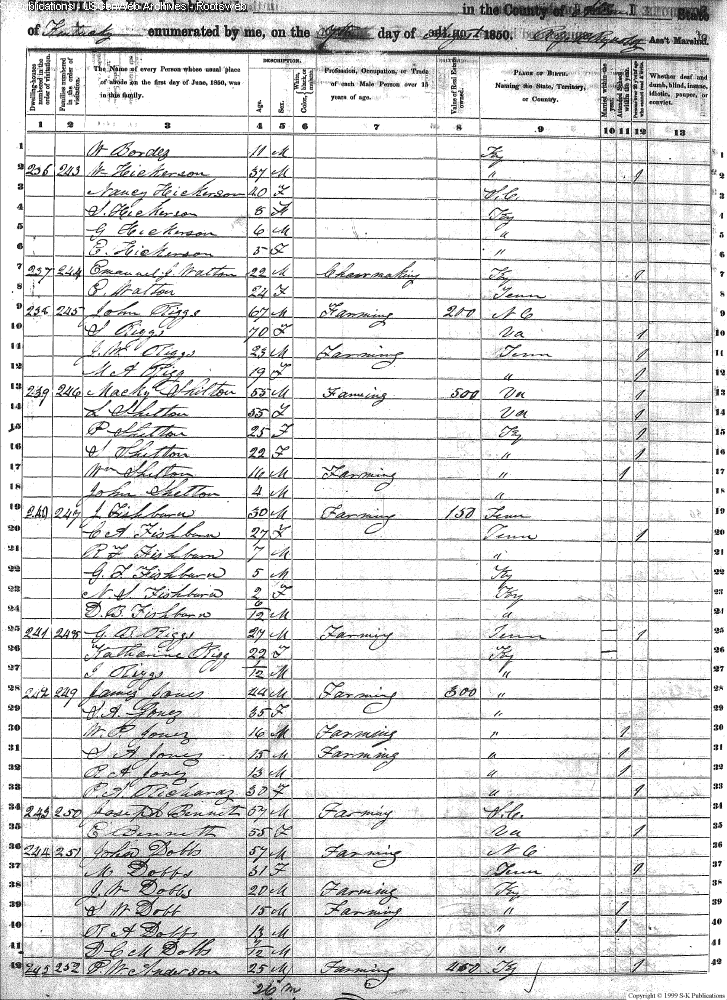 Publications : US GenWeb Archives - Rootsweb
in the County of State
of Kentucky enumerated by me, on the day of August 1850. Ass't Marshal.
Dwelling-houses numbered in the order of visitation.
Families numbered in the order of visitation.
The Name of every Person whose usual place of abode on the first day of June, 1850, was in this family.
DESCRIPTION.
Age.
Sex.
Color, White, black, or mulatto.
Profession, Occupation, or Trade of each Male Person over 15 years of age.
Value of Real Estate owned.
PLACE OF BIRTH. Naming the State, Territory, or Country.
Married within the year.
Attended School within the year.
Whether deaf and dumb, blind, insane, idiotic, pauper, or convict.
1 2 3 4 5 6 7 8 9 10 11 12 13
1 W Bordes 11 M Ky 1
2 236 243 W Hickerson 37 M " 1 2
3 Nancy Hickerson 40 F N.C. 3
4 S. Hickerson 8 Ky 4
5 G Hickerson 6 M " 5
6 E. Hickerson 5 F " 6
7 237 244 Emanuel J Watton 22 M Chairmaking Ky 1 7
8 E Watton 24 F Tenn 8
9 238 245 John Riggs 67 M Farming 200 N C 9
10 S Riggs 70 F Va 1 10
11 J. W. Riggs 23 M Farming Tenn 1 11
12 M A Rigg 19 F " 1 12
13 239 246 Macky Shelton 55 M Farming 500 Va 1 13
14 L Shelton 55 F Va 1 14
15 P Shelton 25 F Ky 1 15
16 S Shelton 22 F " 1 16
17 Wm Shelton 16 M Farming " 1 17
18 John Shelton 4 M " 18
19 240 247 L Fishburn 30 M Farming 150 Tenn 19
20 C A Fishburn 27 F Tenn 1 20
21 R F Fishburn 7 M " 21
22 G. F Fishburn 5 M Ky 22
23 N S. Fishburn 2 F Ky 23
24 D. B Fishburn 6/12 M " 24
25 241 248 G B Riggs 27 M Farming Tenn 1 25
26 Katharine Rigg 22 F Ky 26
27 J Riggs 1/12 M " 27
28 242 249 James Jones 44 M Farming 300 " 28
29 S. A. Jonez 35 F " 29
30 W. P. Jonez 16 M Farming " 1 30
31 S A Jonez 15 M Farming " 1 31
32 R A Jonez 13 M " 1 32
33 30 F " 1 33
34 243 250 Joseph Bennett 57 M Farming N.C. 34
35 E Bennett 55 F Va 1 35
36 244 251 John Dobbs 57 M Farming N C 36
37 M Dobbs 51 F Tenn 1 37
38 J. W Dobbs 20 M Farming Ky 38
39 S W Dobb 15 M Farming " 1 39
40 R A Dobbs 13 M " 1 40
41 D C M Dobbs /12 M " 41
42 245 252 P. W. Anderson 25 M Farming 450 Ky 1 42
26 m
Copyright © 1999 S-K Publications